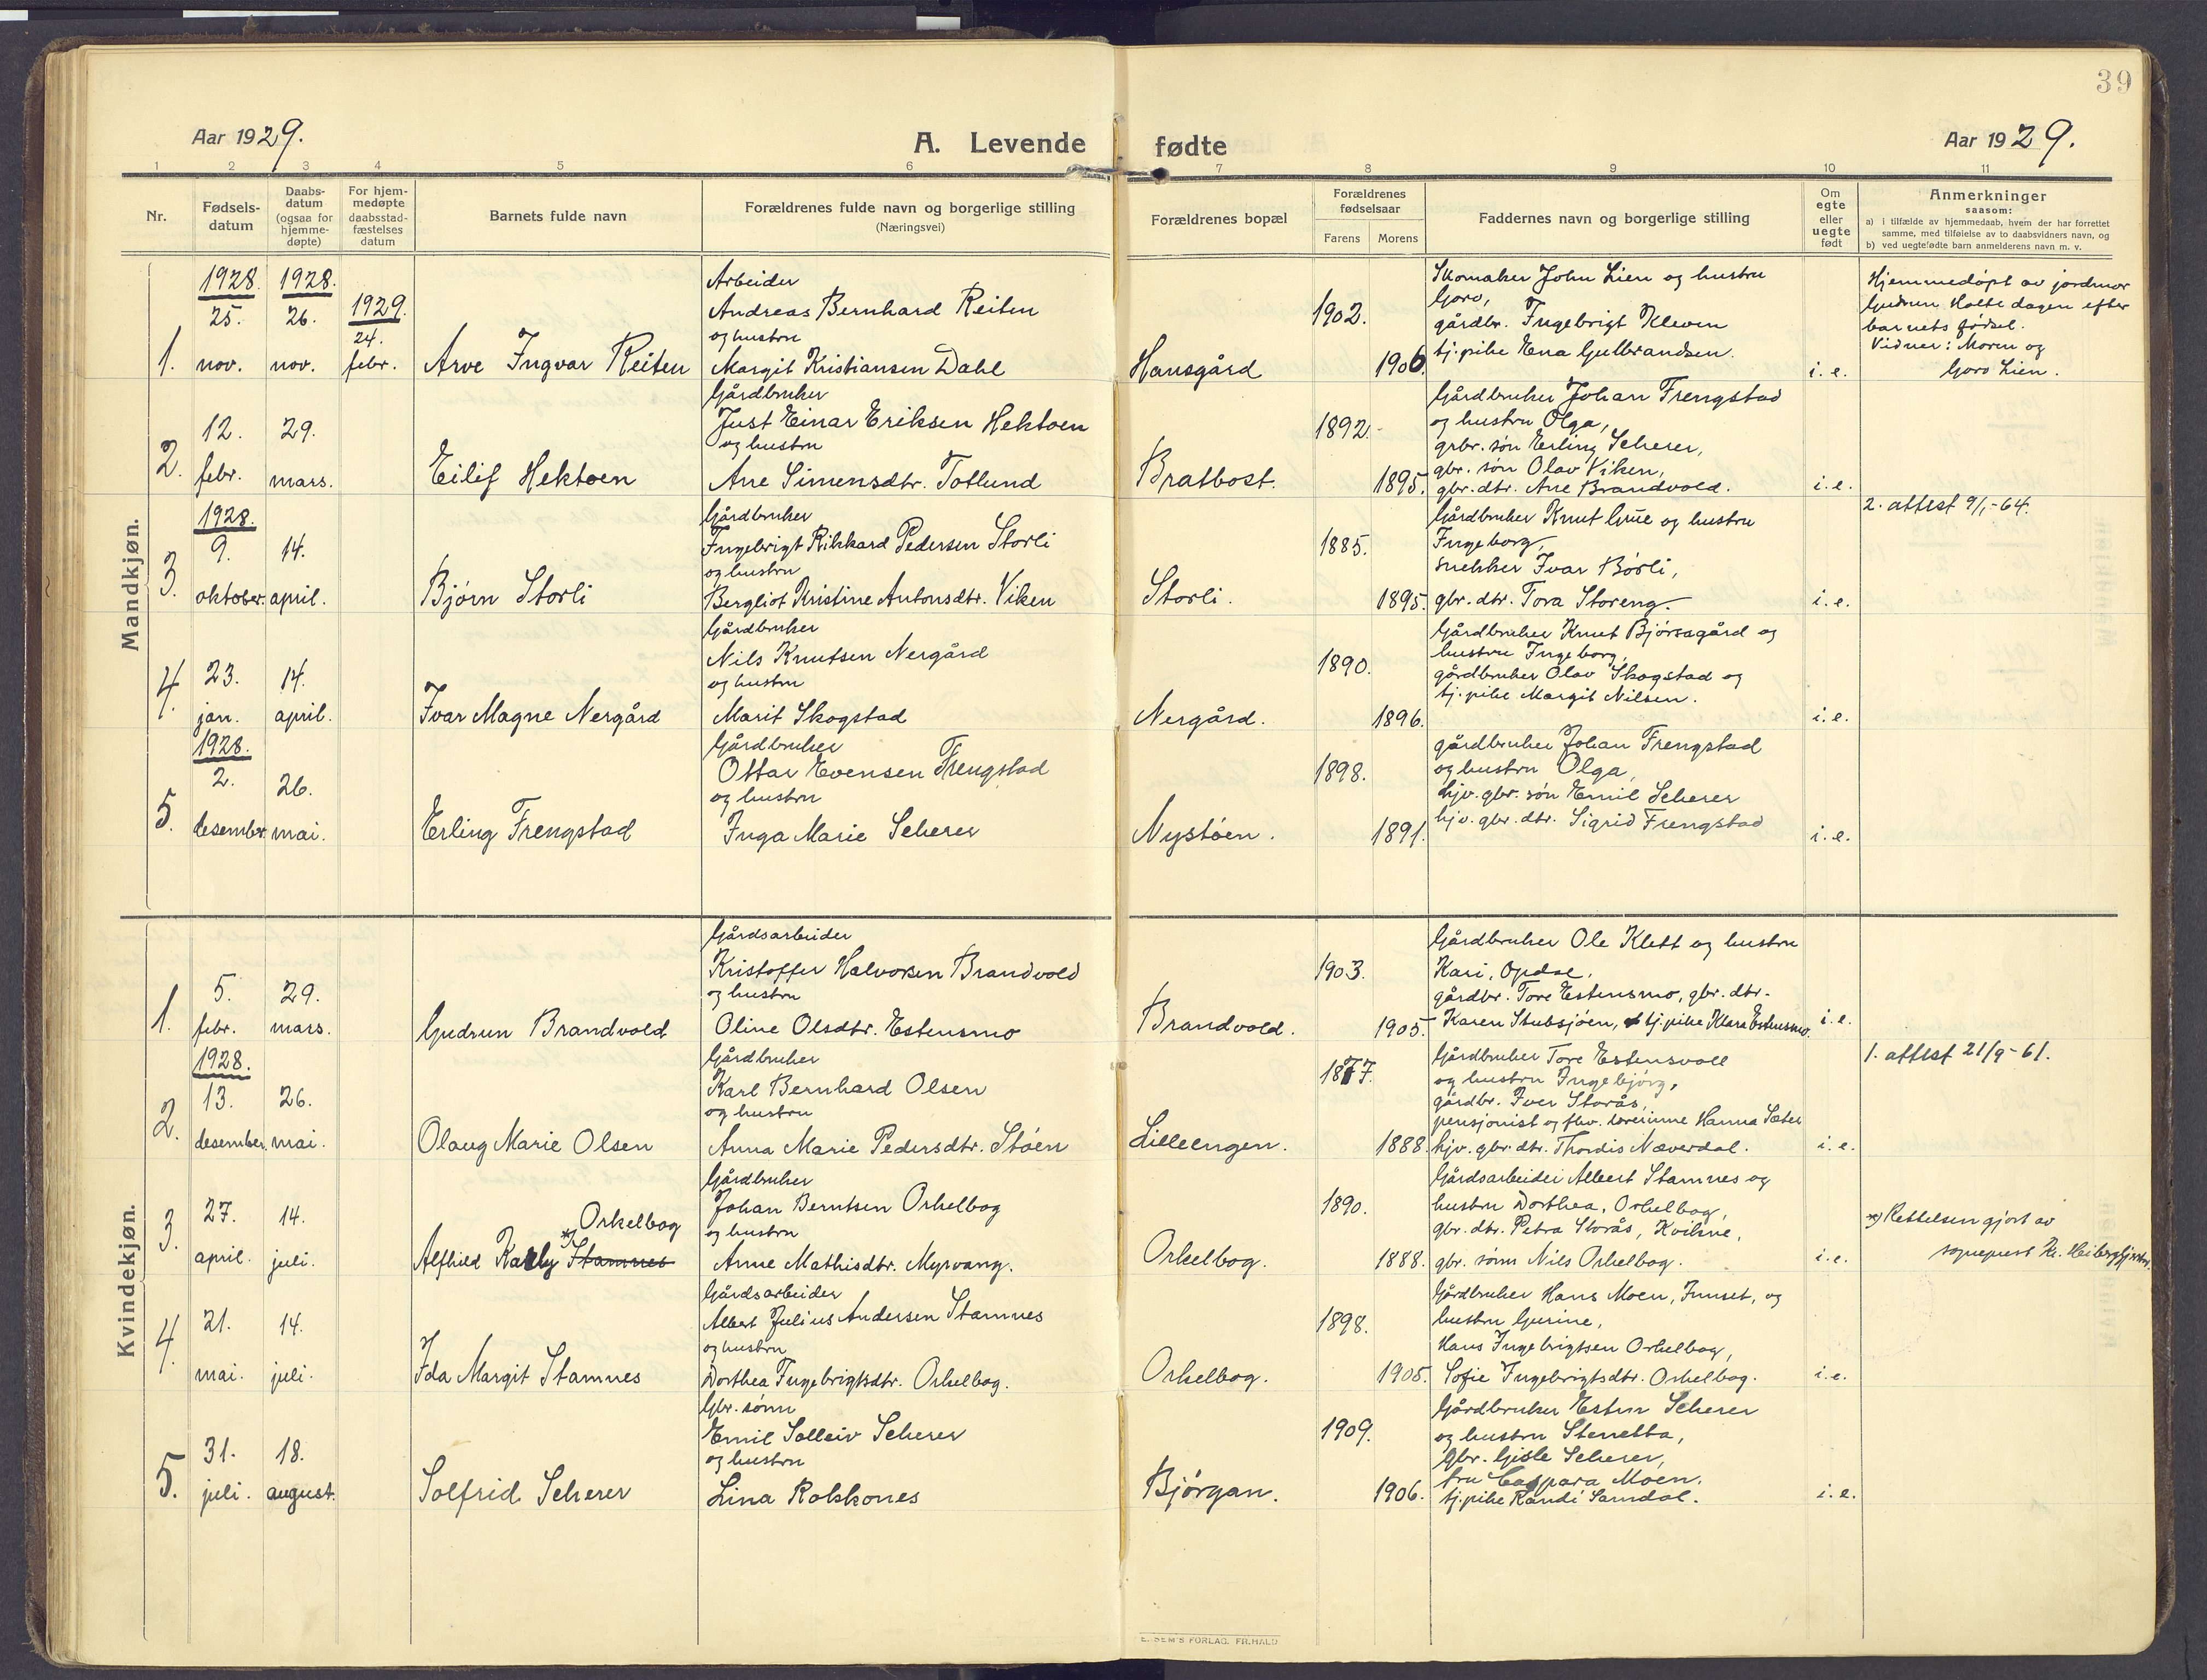 39
Aar 1929.
A. Levende fødte
Aar 1929.
1 2 3 4 5 6 7 8 9 10 11
Nr.
Fødsels-
datum
Daabs-
datum
(ogsaa for
hjemme-
døpte)
For hjem-
medøpte
daabsstad-
fæstelses
datum
Barnets fulde navn
Forældrenes fulde navn og borgerlige stilling
(Næringsvei)
Forældrenes bopæl
Forældrenes
fødselsaar
Farens Morens
Faddernes navn og borgerlige stilling
Om
egte
eller
uegte
født
Anmerkninger
saasom:
a) i tilfælde av hjemmedaab, hvem der har forrettet
samme, med tilføielse av to daabsvidners navn, og
b) ved uegtefødte barn anmelderens navn m. v.
Mandkjøn.
1.
1928.
25.
nov.
1928.
26.
nov.
1929.
24.
febr.
Arve Ingvar Reiten
Arbeider
Andreas Bernhard Reiten
og hustru
Margit Kristiansen Dahl
Hansgård
1902.
1906.
Skomaker John Lien og hustru
Goro,
gårdbr. Ingebrigt Kleven
tj.pike Ena Gulbrandsen.
i. e.
Hjemmedøpt av jordmor
Gudrun Holte dagen efter
barnets fødsel.
Vidner: Moren og
Goro Lien.
2.
12.
febr.
29.
mars.
Eilif Hektoen
Gårdbruker
Just Einar Eriksen Hektoen
og hustru
Ane Simensdtr. Totlund
Bratbost.
1892.
1895.
Gårdbruker Johan Frengstad
og hustru Olga,
grbr. søn Erling Scherer,
gbr. søn Olav Viken,
gbr. dtr. Ane Brandvold.
i. e.
3.
1928.
9.
oktober.
14.
april.
Bjørn Storli
Gårdbruker
Ingebrigt Rikkard Pedersen Storli
og hustru
Bergliot Kristine Antonsdtr. Viken
Storli.
1885.
1895.
Gårdbruker Knut Grue og hustru
Ingeborg,
snekker Ivar Børli,
gbr. dtr. Tora Storeng.
i. e.
2. attest 9/1-64.
4.
23.
jan.
14.
april.
Ivar Magne Nergård
Gårdbruker
Nils Knutsen Nergård
og hustru
Marit Skogstad
Nergård.
1890.
1896.
Gårdbruker Knut Bjørsagård og
hustru Ingeborg,
gårdbruker Olav Skogstad og
tj. pike Margit Nilsen.
i. e.
5.
1928.
2.
desember
26.
mai.
Erling Frengstad
Gårdbruker
Ottar Evensen Frengstad
og hustru
Inga Marie Scherer
Nystøen.
1898.
1891.
gårdbruker Johan Frengstad
og hustru Olga,
hjv. gbr. søn Emil Scherer
hjv. gbr. dtr. Sigrid Frengstad
i. e.
Kvindekjøn.
1.
5.
febr.
29.
mars.
Gudrun Brandvold
Gårdsarbeider
Kristoffer Halvorsen Brandvold
og hustru
Oline Olsdtr. Estensmo
Brandvold.
1903.
1905.
Gårdbruker Ole Klett og hustru
Kari, Opdal.
gårdbr. Tore Estensmo, gbr. dtr.
Karen Stubsjøen, tj. pike Klara Estensmo.
i. e.
2.
1928.
13.
desember
26.
mai.
Olaug Marie Olsen
Gårdbruker
Karl Bernhard Olsen
og hustru
Anna Marie Pedersdtr. Støen
Lilleengen.
1877.
1888.
Gårdbruker Tore Estensvoll
og hustru Ingebjørg,
gårdbr. Iver Storås,
pensjonist og fhv. lærerinne Hanna Sæter
hjv. gbr. dtr. Thordis Næverdal.
i. e.
1. attest 21/9-61.
3.
27.
april.
14.
juli.
Orkelbog
Alfhild Karly *) Stamnes
Gårdbruker
Johan Berntsen Orkelbog
og hustru
Anne Mathisdtr. Myrvang.
Orkelbog.
1890.
1888.
Gårdsarbeider Albert Stamnes og
hustru Dorthea, Orkelbog,
gbr. dtr. Petra Storås, Kvikne,
gbr. sønn Nils Orkelbog.
i. e.
*) Rettelsen gjort av
sogneprest
4.
21.
mai.
14.
juli.
Ida Margit Stamnes
Gårdsarbeider
Albert Julius Andersen Stamnes
og hustru
Dorthea Ingebrigtsdtr. Orkelbog.
Orkelbog.
1898.
1905.
Gårdbruker Hans Moen, Innset, og
hustru Gurine,
Hans Ingebrigtsen Orkelbog,
Sofie Ingebrigtsdtr. Orkelbog.
i. e.
5.
31.
juli.
18.
august.
Solfrid Scherer
Gbr. sønn
Emil Solleiv Scherer
og hustru
Lina Rokkones
Bjørgan.
1909.
1906.
Gårdbruker Esten Scherer
og hustru Stenetta,
gbr. Gisle Scherer,
fru Caspara Moen.
tj. pike Randi Samdal.
i. e.
E. SEM'S FORLAG. FR.HALD